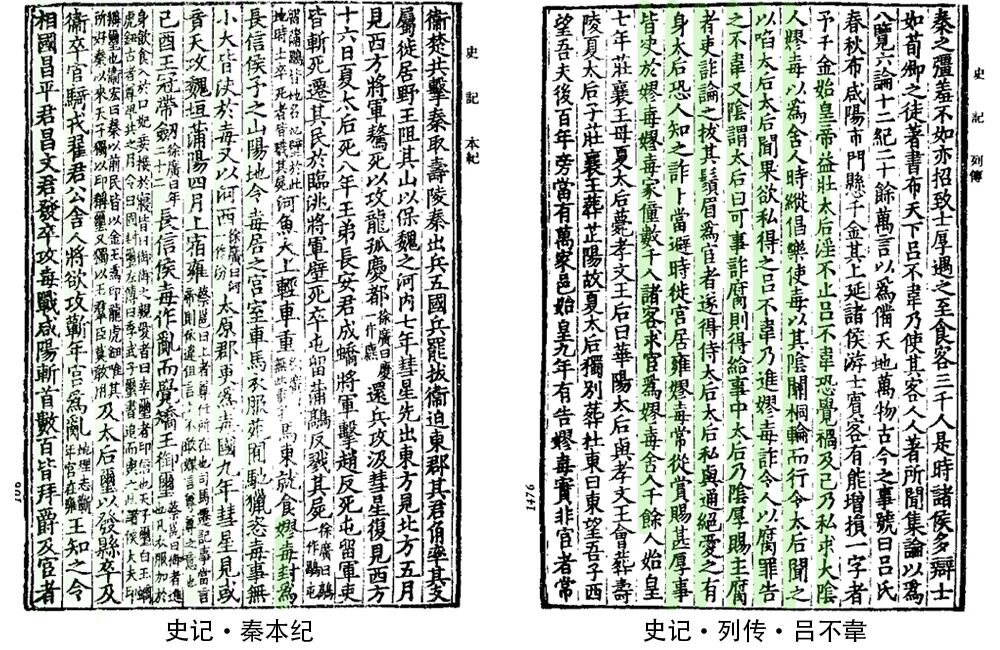 史記 本紀
衛楚共擊秦取壽陵秦出兵五國兵罷拔衛迫東郡其君角率其支
屬徙居野王阻其山以保魏之河内七年彗星先出東方見北方五月
見西方將軍驁死以攻龍孤慶都徐廣曰慶一作麃還兵攻汲彗星復見西方
十六日夏太后死八年王弟長安君成蟜將軍擊趙反死屯留軍吏
皆斬死遷其民於臨洮將軍壁死卒屯留蒲鶮反戮其屍徐廣曰鶮一作鶡屯
留蒲鶮皆地名也於此地時士卒死者皆戮其屍河魚大上輕車重馬東就食嫪毐封爲
長信侯予之山陽地令毐居之宮室車馬衣服苑囿馳獵恣毐事無
小大皆決於毐又以河西徐廣曰河一作汾太原郡更爲毐國九年彗星見或
竟天攻魏垣蒲陽四月上宿雍蔡邕曰上者尊位所在也司馬遷記事當言帝則依違但言上不敢媟言尊尊之意也
己酉王冠帶劒徐廣曰年二十二長信侯毐作亂而覺矯王御璽蔡邕曰御者進也凡衣服加於
身飲食入於口妃妾接於寢皆曰御御之親愛者曰幸璽者印信也天子璽白玉螭
虎鈕
及太后璽以發縣卒及
衛卒官騎戎翟君公舍人將欲攻蘄年宮爲亂地理志蘄年宮在雍王知之令
相國昌平君昌文君發卒攻毐戰咸陽斬首數百皆拜爵及宦者
史记·秦本纪
史記 列傳
秦之彊羞不如亦招致士厚遇之至食客三千人是時諸侯多辯士
如荀卿之徒著書布天下呂不韋乃使其客人人著所聞集論以爲
八覽六論十二紀二十餘萬言以爲備天地萬物古今之事號曰呂氏
春秋布咸陽市門縣千金其上延諸侯游士賓客有能增損一字者
予千金始皇帝益壯太后淫不止呂不韋恐覺禍及己乃私求大陰
人嫪毐以爲舍人時縱倡樂使毐以其陰關桐輪而行令太后聞之
以啗太后太后聞果欲私得之呂不韋乃進嫪毐詐令人以腐罪告
之不韋又陰謂太后曰可事詐腐則得給事中太后乃陰厚賜主腐
者吏詐論之拔其鬚眉爲宦者遂得侍太后太后私與通絕愛之有
身太后恐人知之詐卜當避時徙宮居雍嫪毐常從賞賜甚厚事
皆決於嫪毐嫪毐家僮數千人諸客求宦爲嫪毐舍人千餘人始皇
七年莊襄王母夏太后薨孝文王后曰華陽太后與孝文王會葬壽
陵夏太后子莊襄王葬芷陽故夏太后獨別葬杜東曰東望吾子西
望吾夫後百年旁當有萬家邑始皇九年有告嫪毐實非宦者常
1476
史记·列传·吕不韋